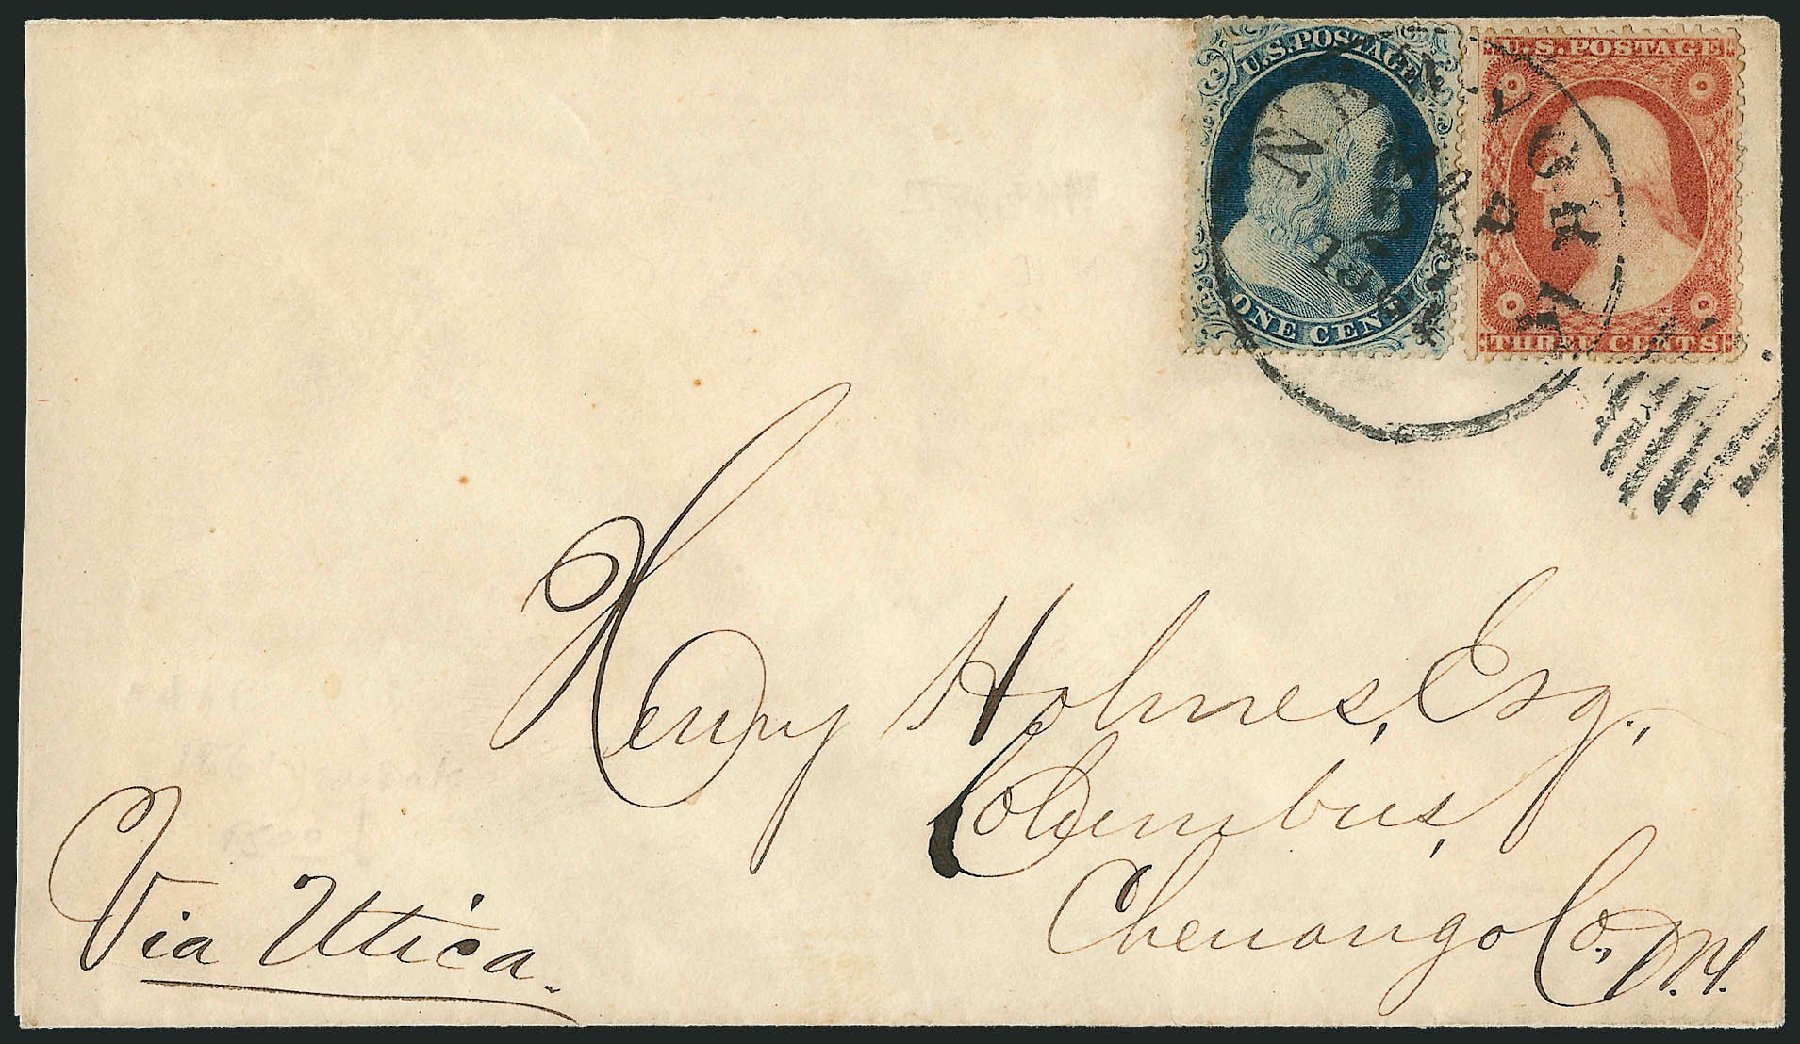 U.S. POSTAGE
ONE CENT
U.S. POSTAGE
THREE CENTS
Henry Holmes, Esq.,
Columbus,
Chenango Co., N.Y.
Via Utica.